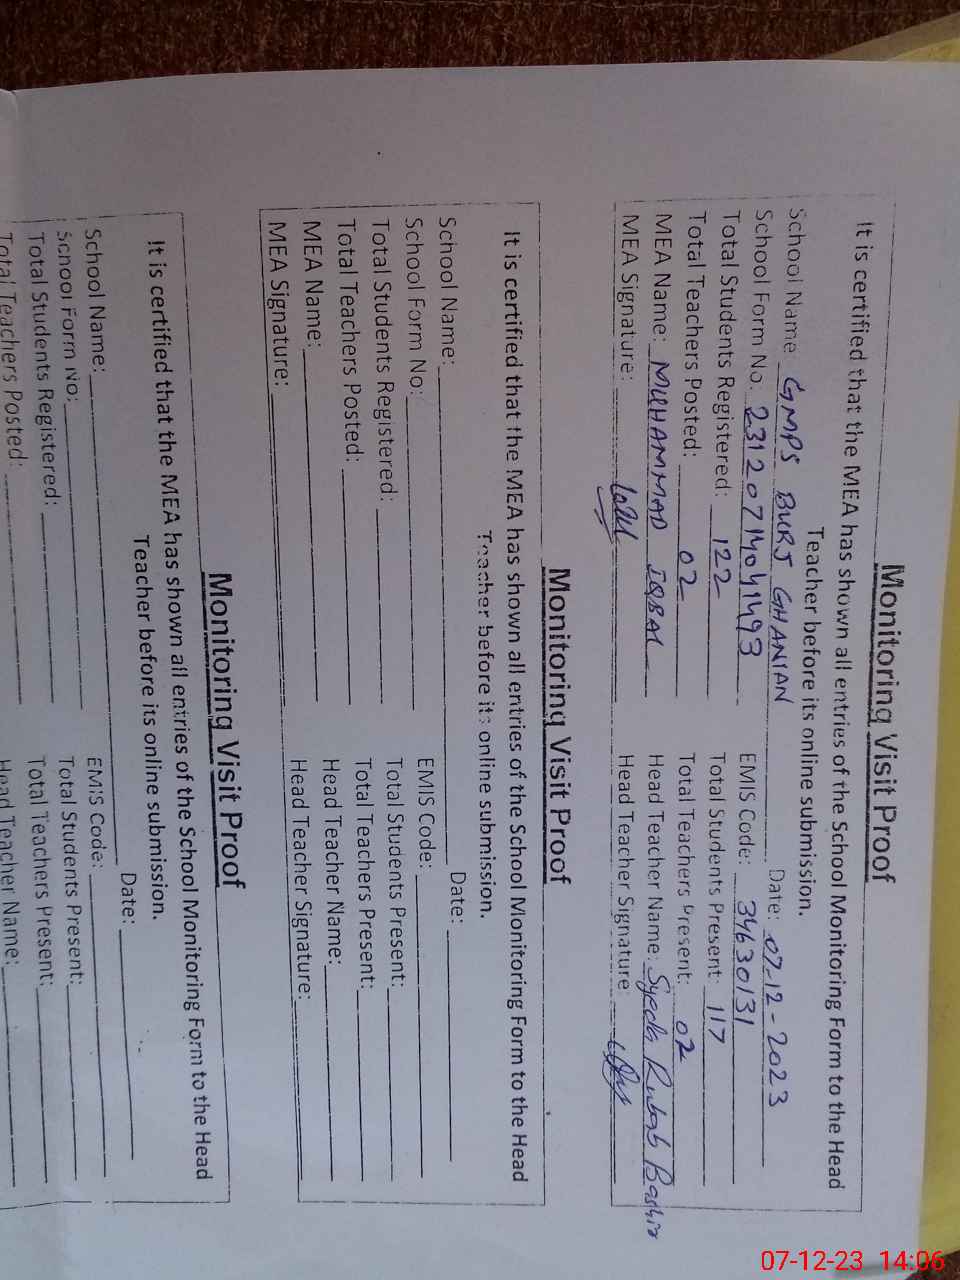 Monitoring Visit Proof
It is certified that the MEA has shown all entries of the School Monitoring Form to the Head
Teacher before its online submission.
School Name: GMPS BURJ GHANIAN Date: 07-12-2023
School Form No. 23120714041493 EMIS Code: 34630131
Total Students Registered: 122 Total Students Present: 117
Total Teachers Posted: 02 Total Teachers Present: 02
MEA Name: MUHAMMAD IQBAL Head Teacher Name: Syeda Rubab Bashir
MEA Signature: Head Teacher Signature:
Monitoring Visit Proof
It is certified that the MEA has shown all entries of the School Monitoring Form to the Head
Teacher before its online submission.
School Name: Date:
School Form No: EMIS Code:
Total Students Registered: Total Students Present:
Total Teachers Posted: Total Teachers Present:
MEA Name: Head Teacher Name:
MEA Signature: Head Teacher Signature:
Monitoring Visit Proof
It is certified that the MEA has shown all entries of the School Monitoring Form to the Head
Teacher before its online submission.
School Name: Date:
School Form No: EMIS Code:
Total Students Registered: Total Students Present:
Total Teachers Posted: Total Teachers Present:
Head Teacher Name:
07-12-23 14:06